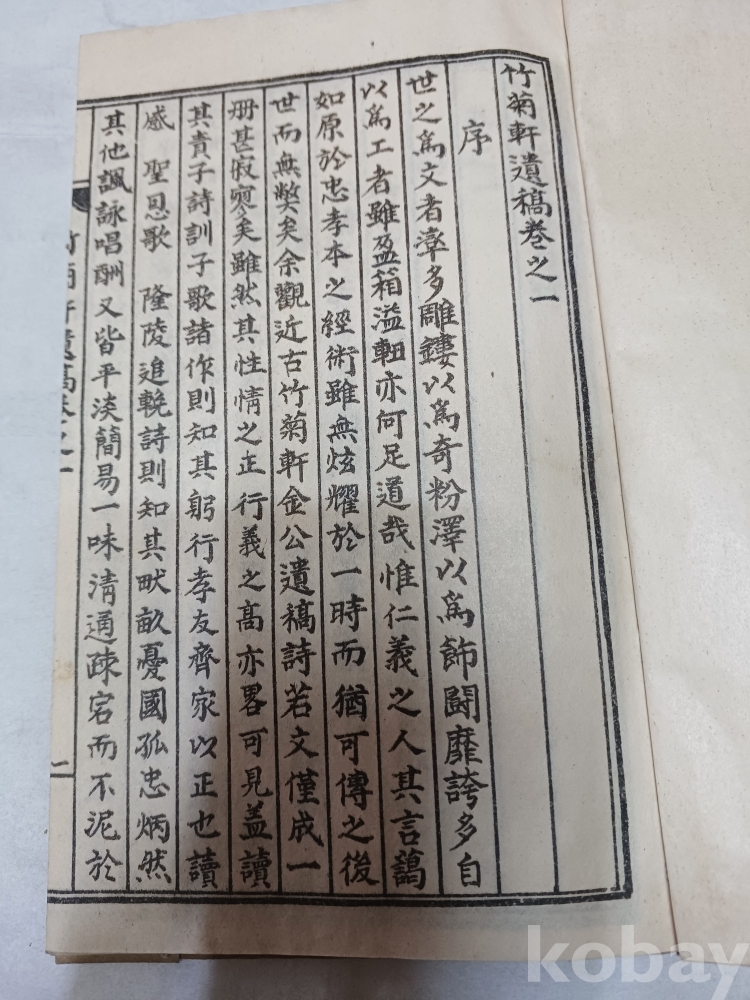 竹菊軒遺稿卷之一
序
世之爲文者率多雕鏤以爲奇粉澤以爲飾鬪靡誇多自
以爲工者雖盈箱溢軸亦何足道哉惟仁義之人其言藹
如原於忠孝本之經術雖無炫耀於一時而猶可傳之後
世而無獘矣余觀近古竹菊軒金公遺稿詩若文僅成一
册甚寂寥矣雖然其性情之正行義之高亦畧可見盖讀
其責子詩訓子歌諸作則知其躬行孝友齊家以正也讀
感 聖恩歌 隆陵追輓詩則知其畎畝憂國孤忠炳然
其他諷詠唱酬又皆平淡簡易一味淸通疎宕而不泥於
竹菊軒遺稿卷之一
kobay